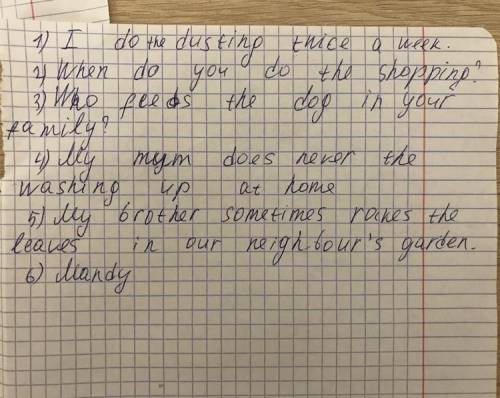 1) I do the dusting twice a week.
2) When do you do the shopping?
3) Who feeds the dog in your
family?
4) My mum does never the
washing up at home
5) My brother sometimes rakes the
leaves in our neighbour's garden.
6) Mandy